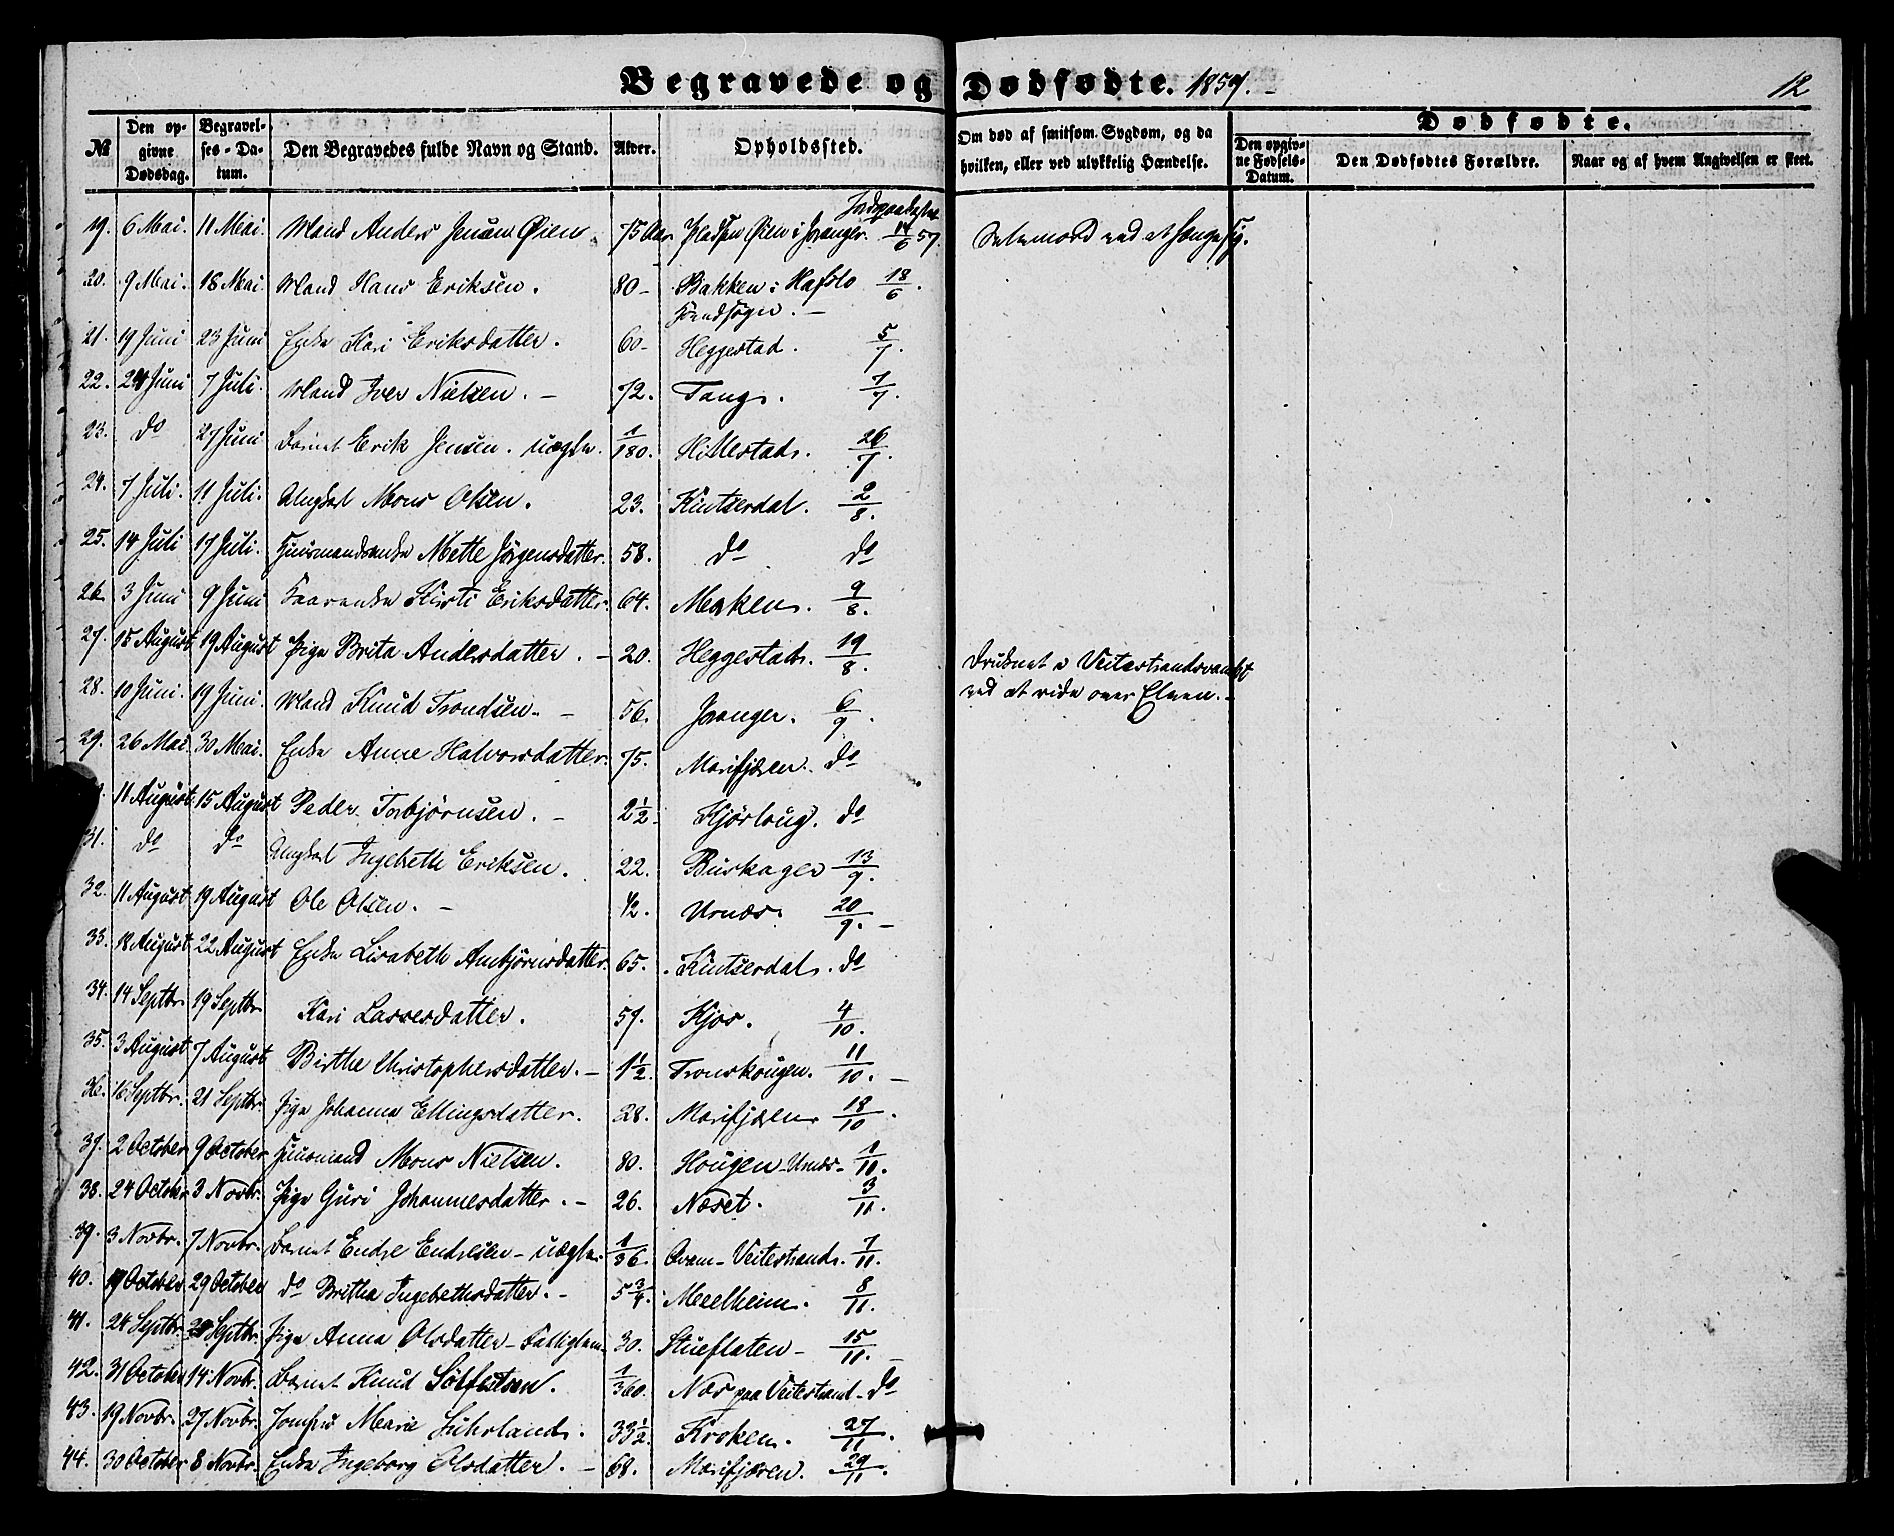 Begravede og Dødfødte. 1857. 12
№ Den opgivne Dødsdag. Begravelses-Datum. Den Begravedes fulde Navn og Stand. Alder. Opholdssted. Om død af smitsom Sygdom, og da hvilken, eller ved ulykkelig Hændelse. Dødfødte. Den opgivne Fødsels-Datum. Den Dødfødtes Forældre. Naar og af hvem Angivelsen er skeet.
Jordpaakastet
19. 6 Mai. 11 Mai. Mand Anders Jensen Øien. 75 Aar Pladsen Øien i Joranger. 14/6 57. Selvmord ved at hænge sig.
20. 9 Mai. 18 Mai. Mand Hans Eriksen. 80 - Bakken i Hafslo 18/6.
21. 19 Juni 23 Juni Enke Kari Eriksdatter. 60 - Heggestad. 5/7.
22. 24 Juni 7 Juli. Mand Iver Nielsen. - 72. Tang. 7/7.
23. do 27 Juni Barnet Erik Jensen. uægte. 1/180. Hillestad. 26/7.
24. 7 Juli. 11 Juli. Ungkarl Mons Olsen. 23. Kintserdal. 2/8.
25. 14 Juli 17 Juli. Huusmandsenke Mette Jørgensdatter. 58. do do
26. 3 Juni 9 Juni Kaarenke Kirsti Eriksdatter. 64. Moken. 9/8.
27. 15 August 19 August Pige Brita Andersdatter. - 20. Heggestad. 19/8. Druknet i Veitestrandsvandet
ved at ride over Elven. -
28. 10 Juni. 19 Juni. Mand Knud Trondsen. - 56. Joranger. 6/9.
29. 26 Mai 30 Mai. Enke Anne Halvorsdatter. 75. Marifjæren. do
11 August 15 August Peder Torbjørnsen. - 2 1/2. Kjørloug. do
31. do do Ungkarl Ingebreth Eriksen. 22. Buskager 13/9.
32. 11 August 19 August Ole Olsen. - 1/2. Urnæs. 20/9. -
33. 18 August 22 August Enke Lisabeth Ambjørnsdatter. 65. Kintserdal. do
34. 14 Septbr 19 Septbr Kari Lassesdatter. 57. Kjos. 4/10.
35. 3 August 7 August Birthe Christophersdatter. - 1 1/2. Tronskougen. 11/10. -
36. 16 Septbr. 21 Septbr. Pige Johanna Ellingsdatter. 28. Marifjæren 18/10.
37. 2 October 9 October Huusmand Mons Nielsen. 80. Hougen - Urnæs - 1/11.
38. 24 October 3 Novbr. Pige Guri Johannesdatter. - 26. Næset. 3/11.
39. 3 Novbr. 7 Novbr. Barnet Endre Endresen - uægte. 1/36. Qvam - Veitestrand. 7/11.
40. 19 October 29 October do Britha Ingebrethsdatter. - 5 3/4. Meelheim. 8/11.
41. 24 Septbr. 29 Septbr. Pige Anna Olsdatter - Fattiglem. 30. Stueflaten - 15/11. -
42. 31 October 14 Novbr. Barnet Knud Solfestsen. 1/360. Næs paa Veitestrand - do
43. 19 Novbr. 27 Novbr. Jomfru Marie Suhrland. 33 1/2. Kroken. 27/11.
44. 30 October 8 Novbr. Enke Ingeborg Olsdatter. - 68. Marifjæren. 29/11.